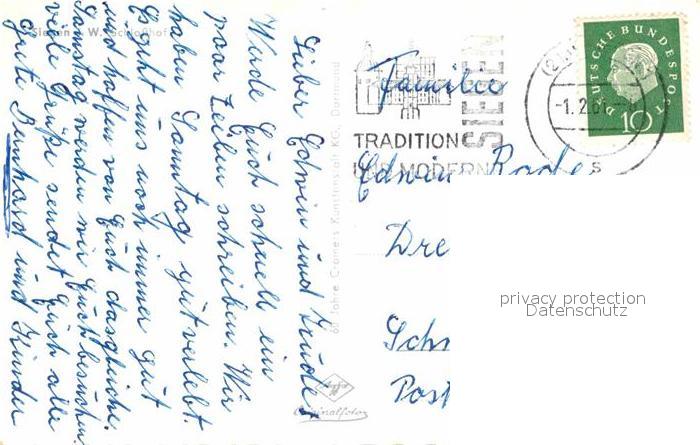 Siegen i. W. Schloßhof
Lieber Edwin und Trude!
Wurde Euch schnell ein
paar Zeilen schreiben. Wir
haben Sonntag gut verlebt.
Es geht uns noch immer gut
und hoffen von Euch dasgleiche.
Samstag werden wir Euch besuchen.
Viele Grüße sendet Euch alle
Grete Bernhard und Kinder
60 Jahre Cramers Kunstanstalt KG., Dortmund
Agfa
Originalfoto
SIEGEN
TRADITION
MODERN
-1.2.61
DEUTSCHE BUNDESPOST
10
Familie
Edwin Rod
Dre
Sch
Post
privacy protection
Datenschutz